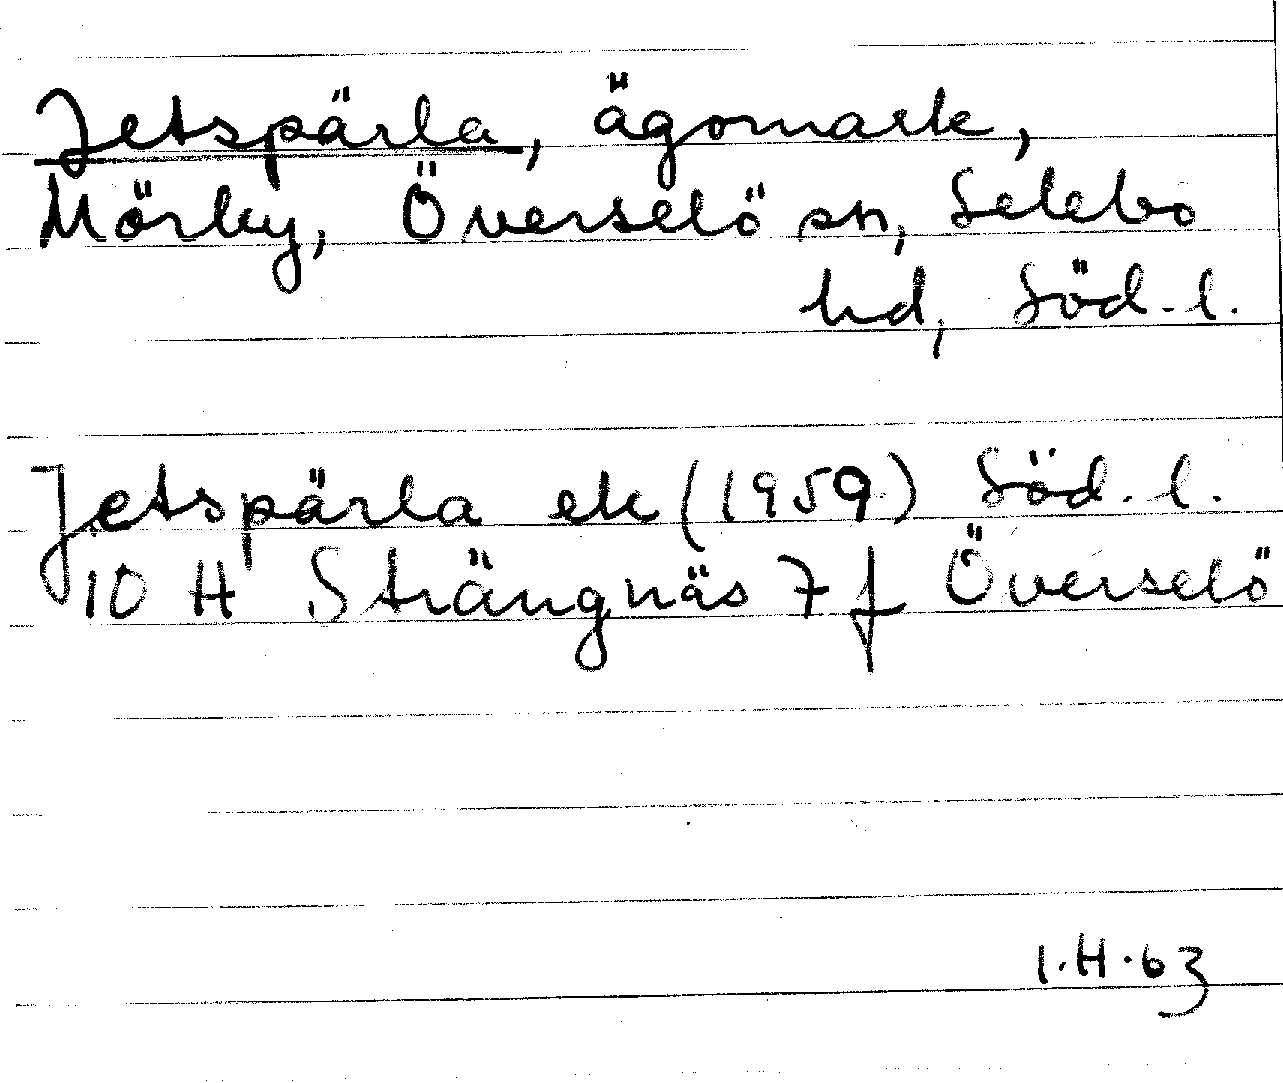 Jetspärla, ägomark,
Mörby, Överselö sn, Selebo
hd, Söd.l.
Jetspärla ek (1959) Söd.l.
10 H Strängnäs 7 f Överselö
I.H.63